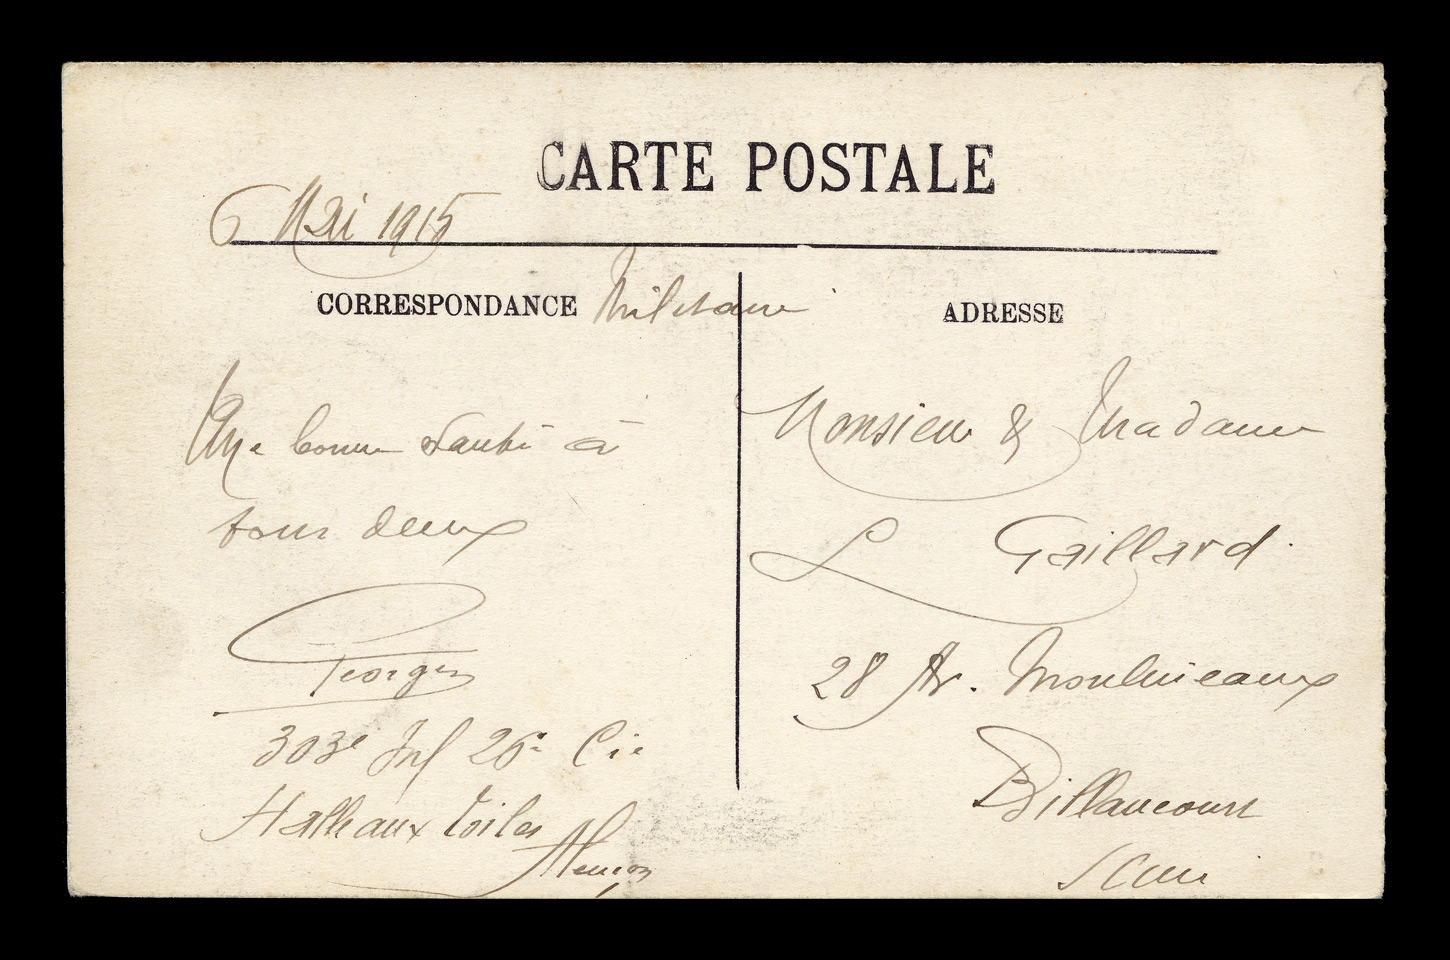 CARTE POSTALE
6 Mai 1915
CORRESPONDANCE Militaire
ADRESSE
Une bonne santé à
tous deux
Georges
303e Inf 26e Cie
Halle aux toiles
Alençon
Monsieur & Madame
L Gaillard.
28 Av. Moulineaux
Billancourt
Seine